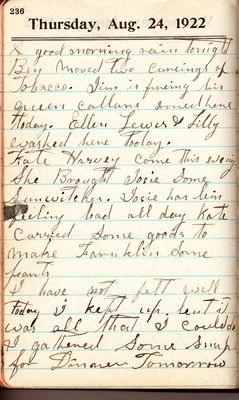 236
Thursday, Aug. 24, 1922
A good morning rain tonight
Ben moved two curings of
Tobacco. Jim is fixing his
queen callans somewhere
today. Ellen Lewis & Lilly
washed here today.
Kate Harvey come this eveng
She Brought Josie Some
Sanwitches. Josie has bin
feeling bad all day Kate
carried some goods to
make Franklin Some
pants
I have not felt well
today, i kept up, but it
was all that I could do
I gathered Some Snap
for Dinner Tomorrow